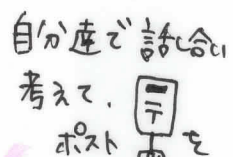 自分達で話し合い
考えて、
ポスト 〒 を